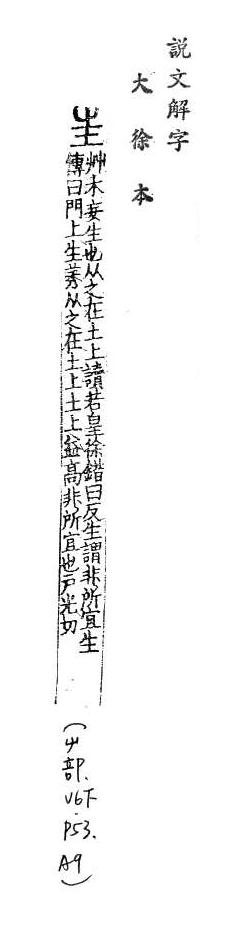 説文解字
大徐本
㞷
艸木妄生也从之在土上讀若皇徐鍇曰反生謂非所宜生
傳曰門上生莠从之在土上土上益高非所宜也戶光切
(㞢部. V6下. P53. A9)